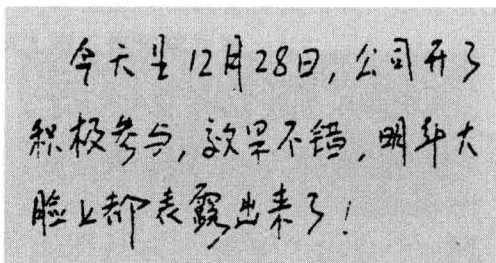 今天是12月28日,公司开了
积极参与,效果不错,明年大
脸上都表露出来了!